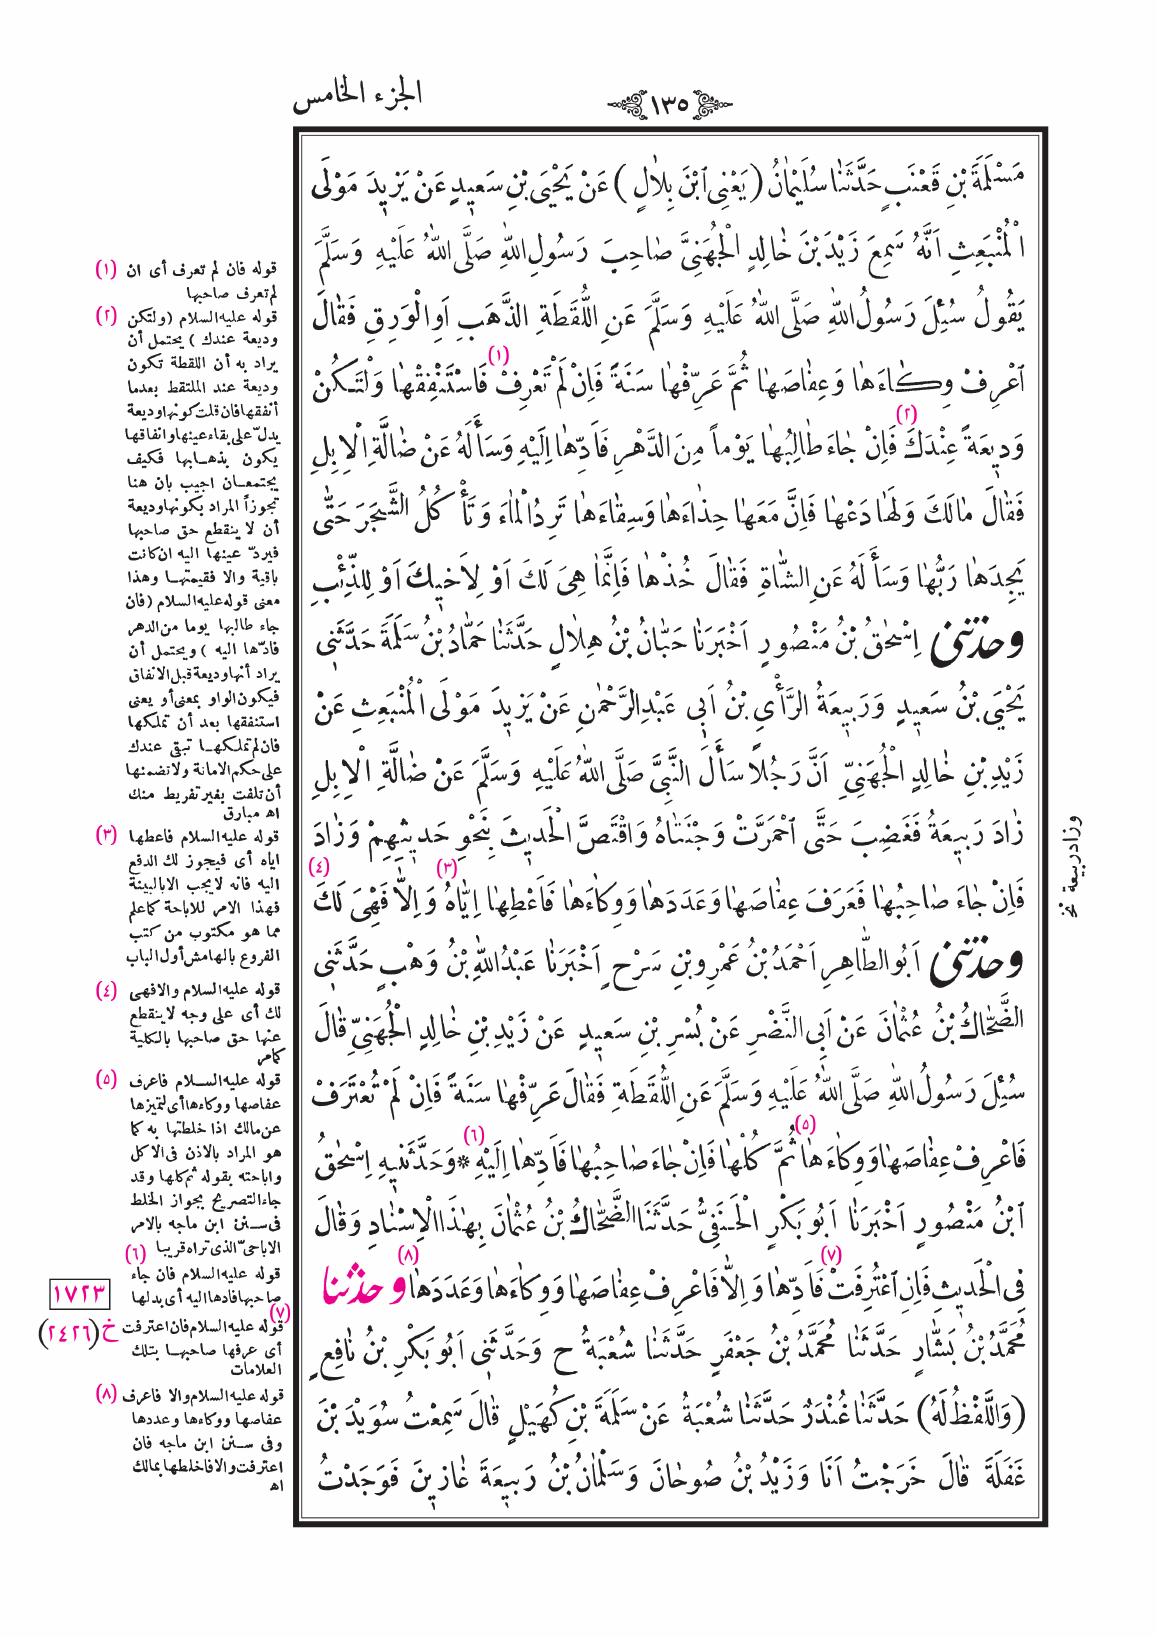 الجزء الخامس
١٣٥
مَسْلَمَةَ بْنِ قَعْنَبٍ حَدَّثَنَا سُلَيْمَانُ (يَعْنِى ابْنَ بِلَالٍ) عَنْ يَحْيَى بْنِ سَعِيدٍ عَنْ يَزِيدَ مَوْلَى
الْمُنْبَعِثِ اَنَّهُ سَمِعَ زَيْدَ بْنَ خَالِدٍ الْجُهَنِىَّ صَاحِبَ رَسُولِ اللّٰهِ صَلَّى اللّٰهُ عَلَيْهِ وَسَلَّمَ
يَقُولُ سُئِلَ رَسُولُ اللّٰهِ صَلَّى اللّٰهُ عَلَيْهِ وَسَلَّمَ عَنِ اللُّقَطَةِ الذَّهَبِ اَوِ الْوَرِقِ فَقَالَ
اَعْرِفْ وِكَاءَهَا وَعِفَاصَهَا ثُمَّ عَرِّفْهَا سَنَةً فَاِنْ لَمْ تَعْرِفْ (١) فَاسْتَنْفِقْهَا وَلْتَكُنْ
وَدِيعَةً عِنْدَكَ (٢) فَاِنْ جَاءَ طَالِبُهَا يَوْماً مِنَ الدَّهْرِ فَاَدِّهَا اِلَيْهِ وَسَأَلَهُ عَنْ ضَالَّةِ الْاِبِلِ
فَقَالَ مَالَكَ وَلَهَا دَعْهَا فَاِنَّ مَعَهَا حِذَاءَهَا وَسِقَاءَهَا تَرِدُ الْمَاءَ وَتَأْكُلُ الشَّجَرَ حَتَّى
يَجِدَهَا رَبُّهَا وَسَأَلَهُ عَنِ الشَّاةِ فَقَالَ خُذْهَا فَاِنَّمَا هِىَ لَكَ اَوْ لِاَخِيكَ اَوْ لِلذِّئْبِ
وحدثنى اِسْحٰقُ بْنُ مَنْصُورٍ اَخْبَرَنَا حَبَّانُ بْنُ هِلَالٍ حَدَّثَنَا حَمَّادُ بْنُ سَلَمَةَ حَدَّثَنِى
يَحْيَى بْنُ سَعِيدٍ وَرَبِيعَةُ الرَّأْىِ بْنُ اَبِى عَبْدِ الرَّحْمٰنِ عَنْ يَزِيدَ مَوْلَى الْمُنْبَعِثِ عَنْ
زَيْدِ بْنِ خَالِدٍ الْجُهَنِىِّ اَنَّ رَجُلاً سَأَلَ النَّبِىَّ صَلَّى اللّٰهُ عَلَيْهِ وَسَلَّمَ عَنْ ضَالَّةِ الْاِبِلِ
زَادَ رَبِيعَةُ فَغَضِبَ حَتَّى احْمَرَّتْ وَجْنَتَاهُ وَاقْتَصَّ الْحَدِيثَ بِنَحْوِ حَدِيثِهِمْ وَزَادَ
فَاِنْ جَاءَ صَاحِبُهَا فَعَرَفَ عِفَاصَهَا وَعَدَدَهَا وَوِكَاءَهَا فَاَعْطِهَا اِيَّاهُ (٣) وَاِلَّا فَهْىَ لَكَ (٤)
وحدثنى اَبُو الطَّاهِرِ اَحْمَدُ بْنُ عَمْرِو بْنِ سَرْحٍ اَخْبَرَنَا عَبْدُ اللّٰهِ بْنُ وَهْبٍ حَدَّثَنِى
الضَّحَّاكُ بْنُ عُثْمَانَ عَنْ اَبِى النَّضْرِ عَنْ بُسْرِ بْنِ سَعِيدٍ عَنْ زَيْدِ بْنِ خَالِدٍ الْجُهَنِىِّ قَالَ
سُئِلَ رَسُولُ اللّٰهِ صَلَّى اللّٰهُ عَلَيْهِ وَسَلَّمَ عَنِ اللُّقَطَةِ فَقَالَ عَرِّفْهَا سَنَةً فَاِنْ لَمْ تُعْتَرَفْ
فَاعْرِفْ عِفَاصَهَا وَوِكَاءَهَا (٥) ثُمَّ كُلْهَا فَاِنْ جَاءَ صَاحِبُهَا فَاَدِّهَا اِلَيْهِ (٦) * وَحَدَّثَنِيهِ اِسْحٰقُ
ابْنُ مَنْصُورٍ اَخْبَرَنَا اَبُو بَكْرٍ الْحَنَفِىُّ حَدَّثَنَا الضَّحَّاكُ بْنُ عُثْمَانَ بِهٰذَا الْاِسْنَادِ وَقَالَ
فِى الْحَدِيثِ فَاِنِ اعْتُرِفَتْ (٧) فَاَدِّهَا وَاِلَّا فَاعْرِفْ عِفَاصَهَا وَوِكَاءَهَا وَعَدَدَهَا (٨) وحدثنا
مُحَمَّدُ بْنُ بَشَّارٍ حَدَّثَنَا مُحَمَّدُ بْنُ جَعْفَرٍ حَدَّثَنَا شُعْبَةُ ح وَحَدَّثَنِى اَبُو بَكْرِ بْنُ نَافِعٍ
(وَاللَّفْظُ لَهُ) حَدَّثَنَا غُنْدَرٌ حَدَّثَنَا شُعْبَةُ عَنْ سَلَمَةَ بْنِ كُهَيْلٍ قَالَ سَمِعْتُ سُوَيْدَ بْنَ
غَفَلَةَ قَالَ خَرَجْتُ اَنَا وَزَيْدُ بْنُ صُوحَانَ وَسَلْمَانُ بْنُ رَبِيعَةَ غَازِينَ فَوَجَدْتُ
وزاد ربيعة نخ
(١) قوله فان لم تعرف أى ان
لم تعرف صاحبها
(٢) قوله عليه السلام (ولتكن
وديعة عندك) يحتمل أن
يراد به أن اللقطة تكون
وديعة عند الملتقط بعدما
أنفقها فان قلت كونها وديعة
يدلّ على بقاء عينها وانفاقها
يكون بذهابها فكيف
يجتمعان اجيب بان هنا
تجوزاً المراد بكونها وديعة
أن لا ينقطع حق صاحبها
فيردّ عينها اليه ان كانت
باقية والا فقيمتها وهذا
معنى قوله عليه السلام (فان
جاء طالبها يوما من الدهر
فادّها اليه) ويحتمل أن
يراد أنها وديعة قبل الانفاق
فيكون الواو بمعنى أو يعنى
استنفقها بعد أن تملكها
فان لم تملكها تبقى عندك
على حكم الامانة ولا تضمنها
أن تلفت بغير تفريط منك
اه مبارق
(٣) قوله عليه السلام فاعطها
اياه أى فيجوز لك الدفع
اليه فانه لا يجب الا بالبينة
فهذا الامر للاباحة كما علم
مما هو مكتوب من كتب
الفروع بالهامش أول الباب
(٤) قوله عليه السلام والا فهى
لك أى على وجه لا ينقطع
عنها حق صاحبها بالكلية
كما مر
(٥) قوله عليه السلام فاعرف
عفاصها ووكاءها أى لتميزها
عن مالك اذا خلطتها به كما
هو المراد بالاذن فى الاكل
واباحته بقوله ثم كلها وقد
جاء التصريح بجواز الخلط
فى سنن ابن ماجه بالامر
الاباحىّ الذى تراه قريبا
(٦) قوله عليه السلام فان جاء
صاحبها فادها اليه أى بدلها
(٧) قوله عليه السلام فان اعترفت
أى عرفها صاحبها بتلك
العلامات
(٨) قوله عليه السلام والا فاعرف
عفاصها ووكاءها وعددها
وفى سنن ابن ماجه فان
اعترفت والا فاخلطها بمالك
اه
١٧٢٣
خ (٢٤٢٦)